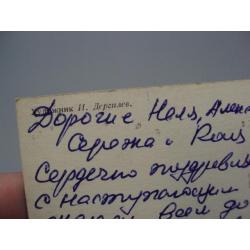 Художник И. Дергилев.
Дорогие Неля, Алекс
Сережа и Раиs
Сердечно поздравля
с наступающим
всем до